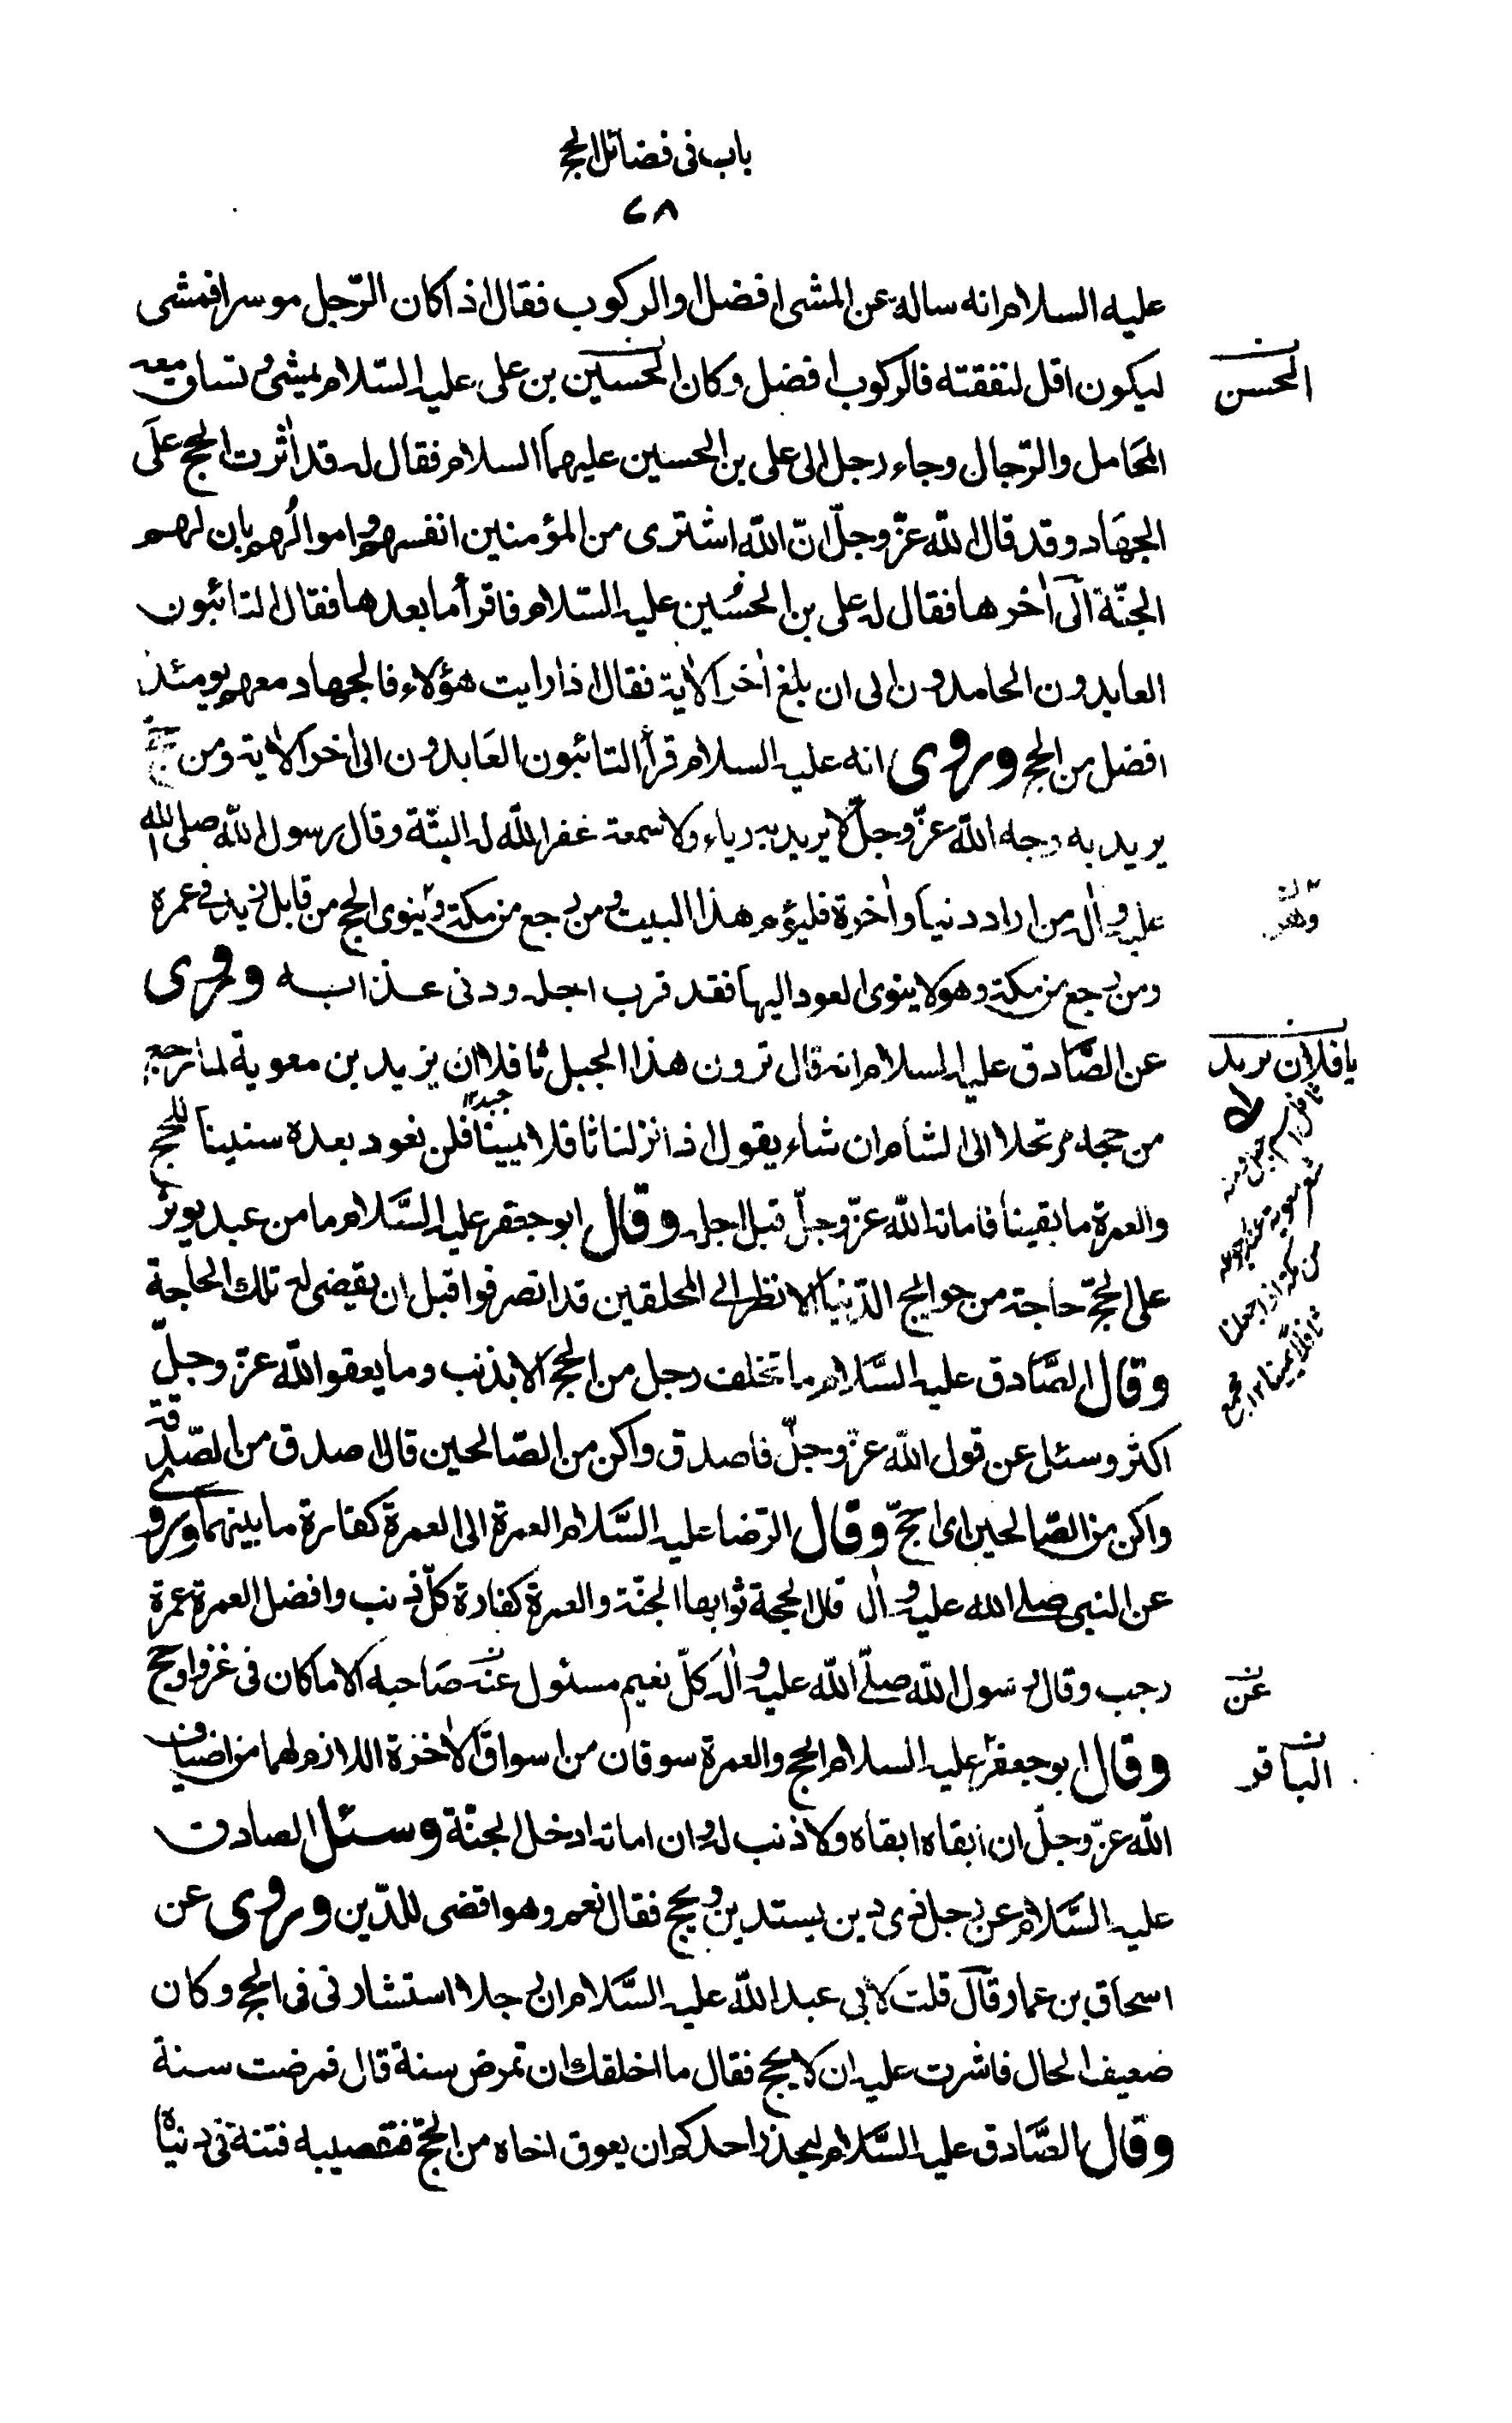 باب فى فضائل الحج
٧٨
عليه السلام انه ساله عن المشى افضل او الركوب فقال اذا كان الرّجل موسرا فمشى
ليكون اقل لنفقته فالركوب افضل وكان الحسين بن على عليه السّلام يمشى و تساق معه
المحَامل والرّحال وجاء رجل الى على بن الحسين عليهمَا السلام فقال له قد اٰثرت الحج علَى
الجهَاد وقد قال اللّه عزّ وجلّ انّ اللّه اشترى من المؤمنين انفسهم و اموالهم بان لهم
الجنّة الٓى اٰخرها فقال له على بن الحسُين عليه السّلام فاقرأ ما بعدها فقال التائبون
العابدون الحامدون الى ان بلغ اٰخر الاٰية فقال اذا رايت هؤلاء فالجهاد معهم يومئذ
افضل من الحج وروى انه عليه السلام قرأ التائبون العَابدون الى اٰخر الاٰية ومن حج
يريد به وجه اللّه عزّ وجلّ لا يريد به رياء ولا سمعة غفر اللّه له البتّة وقال رسول اللّه صلى اللّه
عليه و اٰله من اراد دنيا و اٰخرة فليؤم هذا البيت و من رجع من مكة و ينوى الحج من قابل زيد فى عمره
ومن رجع من مكة وهو لا ينوى العود اليها فقد قرب اجله ودنى عذابه وروى
عن الصَّادق عليه السلام انه قال ترون هذا الجبل ثافلا ان يزيد بن معوية لما رجع
من حجه مرتحلا الى الشام انشاء يقول اذا نزلنا ثافلا يمينًا فلن نعود بعده سنينا للحج
والعمرة ما بقينا فاماته اللّه عزّ وجلّ قبل اجله وقال ابو جعفر عليه السَّلام ما من عبد يوثر
على الحجّ حاجة من حوايج الدّنيا الا نظر الى المحلقين قد انصرفوا قبل ان يقضى له تلك الحاجة
وقال الصَّادق عليه السَّلام ما تخلف رجل من الحج الا بذنب وما يعفو اللّه عزّ وجلّ
اكثر وسئل عن قول اللّه عزّ وجلّ فاصدق واكن من الصّالحين قال اصدق من الصّدقة
واكن من الصّالحين اى احجّ وقال الرّضا عليه السَّلام العمرة الى العمرة كفارة ما بينهما وروى
عن النبى صلى الله عليه و اٰله قال الحجة ثوابها الجنّة والعمرة كفارة كلّ ذنب وافضل العمرة عمرة
رجب وقال رسول اللّه صلّى اللّه عليه و اٰله كلّ نعيم مسئول عنه صَاحبه الا ما كان فى غزو او حج
وقال ابو جعفر عليه السلام الحج والعمرة سوقان من اسواق الاٰخرة اللازم لهما من اضياف
اللّه عزّ وجلّ ان ابقاه ابقاه ولا ذنب له و ان اماته ادخله الجنّة وسئل الصادق
عليه السَّلام عن رجل ذى دين يستدين و يحج فقال نعم وهو اقضى للدّين وروى عن
اسحاق بن عمار قال قلت لابى عبد اللّه عليه السَّلام ان رجلا استشارنى فى الحج وكان
ضعيف الحال فاشرت عليه ان لا يحج فقال ما اخلقك ان تمرض سنة قال فمرضت سنة
وقال الصَّادق عليه السَّلام ليحذر احدكم ان يعوق اخاه من الحجّ فتصيبه فتنة فى دنياه
الحسن
وهو
يا فلان يريد
عن
الباقر